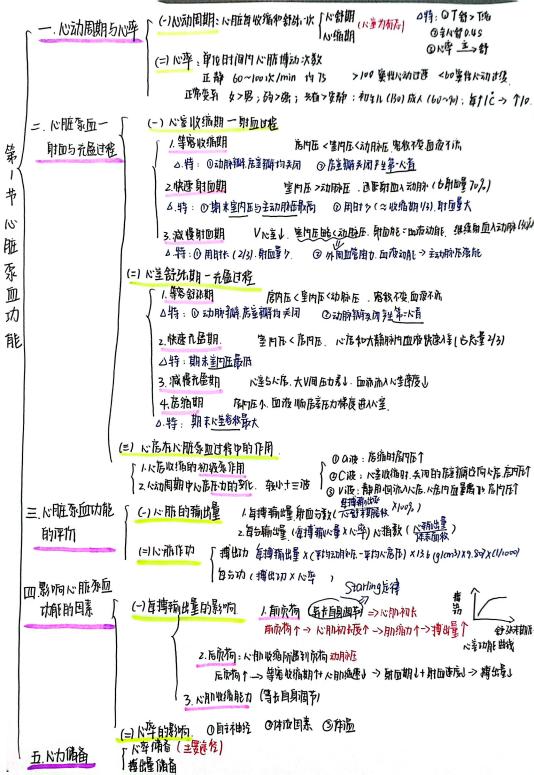 第1节 心脏泵血功能
一.心动周期与心率
(一)心动周期:心脏每收缩和舒张一次
心舒期
心缩期
(心室为标志)
△特:①T舒>T缩
②全心舒0.4s
(二)心率:单位时间内心脏搏动次数
正静 60~100次/min 均75 >100 窦性心动过速 <60窦性心动过缓
正常变异 女>男;弱>强;
二.心脏泵血—射血与充盈过程
(一)心室收缩期—射血过程
1.等容收缩期 房内压<室内压<动脉压 容积不变血液不流
△特:①动脉瓣.房室瓣均关闭 ②房室瓣关闭产生第一心音
2.快速射血期 室内压>动脉压 迅速射血入动脉(占射血量70%)
△特:①期末室内压与主动脉压最高 ②用时少(≈收缩期1/3).射血量大
3.减慢射血期 V心室↓
△特:①用时长(2/3).射血量少 ②外周血管阻力.血液流动→主动脉压
(二)心室舒张期—充盈过程
1.等容舒张期 房内压<室内压<动脉压 容积不变血液不流
△特:①动脉瓣.房室瓣均关闭 ②动脉瓣关闭产生第二心音
2.快速充盈期 室内压<房内压 心房和大静脉内血液快速入室(占总量2/3)
△特:期末室内压最低
3.减慢充盈期 心室与心房.大V间压力差↓ 血液流入心室速度↓
4.房缩期 房内压↑ 血液顺房室压力梯度进入室
△特:期末心室容积最大
(三)心房在心脏泵血过程中的作用
1.心房收缩的初级泵作用
2.心动周期中心房压力的变化 较小 十三波
①a波:房缩时房内压↑
②C波:心室收缩时.关闭的房室瓣凸向心房.房内压↑
③V波:静脉回流入心房.心房内血量增多.房内压↑
三.心脏泵血功能的评价
(一)心脏的输出量
1.每搏输出量.射血分数(每搏输出量/心室舒张末期容积×100%)
2.每分输出量(每搏输出量×心率)心指数(心输出量/体表面积)
(二)心脏作功
搏出功 每搏输出量×(平均动脉压-平均心房压)×13.6(g/cm³)×9.807×(1/1000)
每分功(搏出功×心率)
四.影响心脏泵血功能的因素
(一)每搏输出量的影响
Starling定律
1.前负荷(异长自身调节)⇒心肌初长
前负荷↑→心肌初长度↑→肌缩力↑→搏出量↑
搏功
舒张末期压
心室功能曲线
2.后负荷:心肌收缩所遇到负荷 动脉压
后负荷↑→等容收缩期↑+心肌缩速↓→射血期↓+射血速度↓→搏出量↓
3.心肌收缩能力(等长自身调节)
(二)心率的影响 ①自主神经 ②体液因素 ③体温
五.心力储备
心率储备(主要途径)
搏出量储备